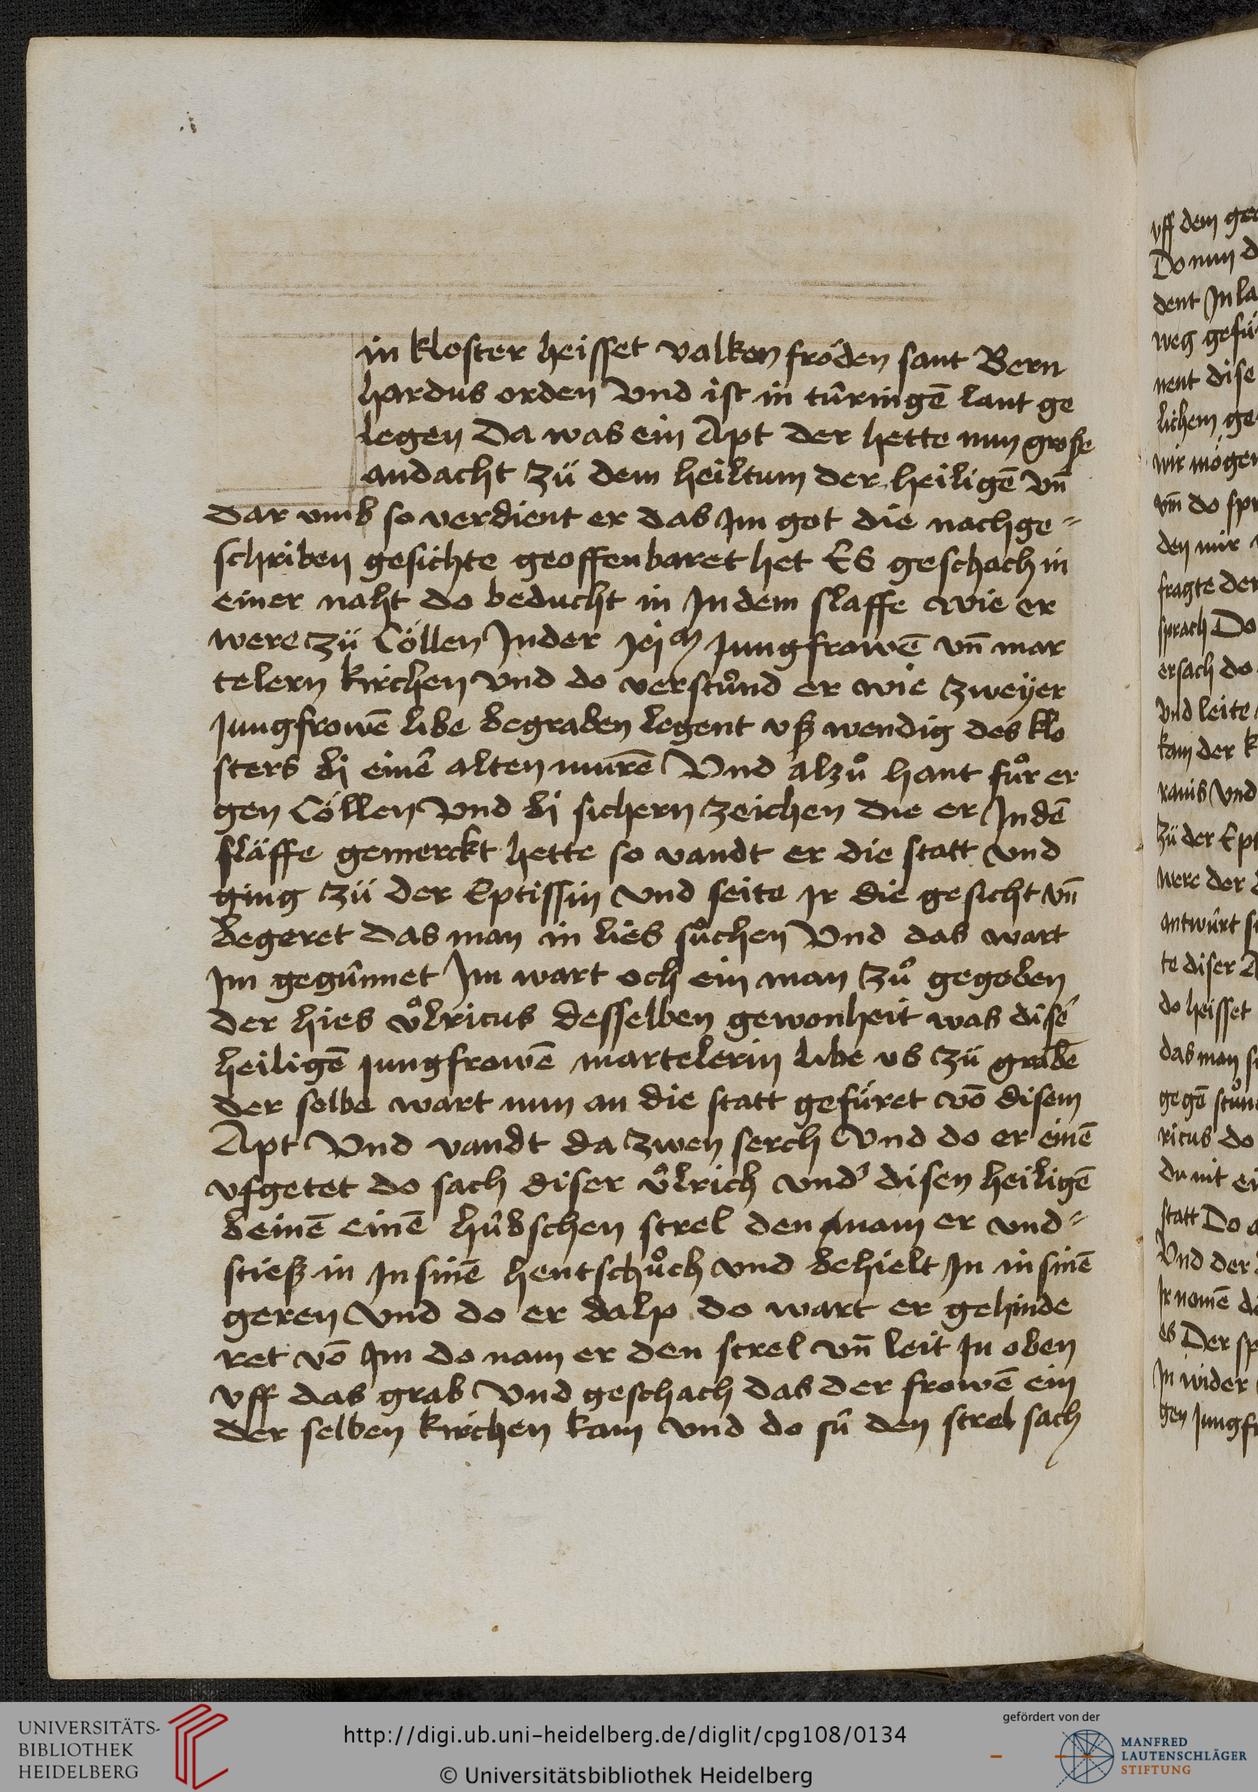 in kloster heisset valken fröden sant Bern
hardus orden Vnd ist in tűringē lant ge
legen Da was ein Apt der hette nun grosse
andacht zü dem heiltum der heiligē vn̄
dar vmb so verdient er das Im got die nachge-
schriben gesichte geoffenbaret het Es geschach in
einer naht do beducht in In dem slaffe wie er
were zü Cöllen In der xjᵐ Jungfrowē vn̄ mar
telern kirchen vnd do verstůnd er wie zweyer
Jungfrowē libe begraben legent vß wendig des klo
sters bi einē alten murē Vnd alzů hant fůr er
gen Cöllen vnd bi sichern zeichen die er In dē
släffe gemerckt hette so vandt er die statt vnd
ging zü der Eptissin vnd seite Ir die gesicht vn̄
begeret das man in lies sůchen Vnd das wart
Im gegünnet Im wart och ein man zů gegeben
der hies vͦlricus desselben gewonheit was disē
heiligē Jungfrowē martelerin libe vs zü grabē
der selbe wart nun an die statt gefüret vō disem
Apt Vnd vandt da zwen serch Vnd do er einē
vfgetet do sach diser vͦlrich vnd' disen heiligē
beinē einē hübschen strel den nam er vnd-
stieß in In sinē hentschůch vnd behielt In in sinē
geren Vnd do er dalp do wart er gehinde
ret vō Im do nam er den strel vn̄ leit In oben
vff das grab Vnd geschach das der frowē ein
der selben kirchen kam vnd do sü den strel sach
vff dem
Do nun
dent In
weg
nent dise
lichem
wir
vn̄ do
den mir
fragte der
sprach Do
ersach do
vnd leite
kam der
vnd
zü der
were der
antwürt
te diser
do heisset
das man
gegē
ricus do
du nit
statt Do
Vnd der
Ir namē
es Der
In wider
gen
UNIVERSITÄTS-
BIBLIOTHEK
HEIDELBERG
http://digi.ub.uni-heidelberg.de/diglit/cpg108/0134
© Universitätsbibliothek Heidelberg
gefördert von der
MANFRED
LAUTENSCHLÄGER
STIFTUNG